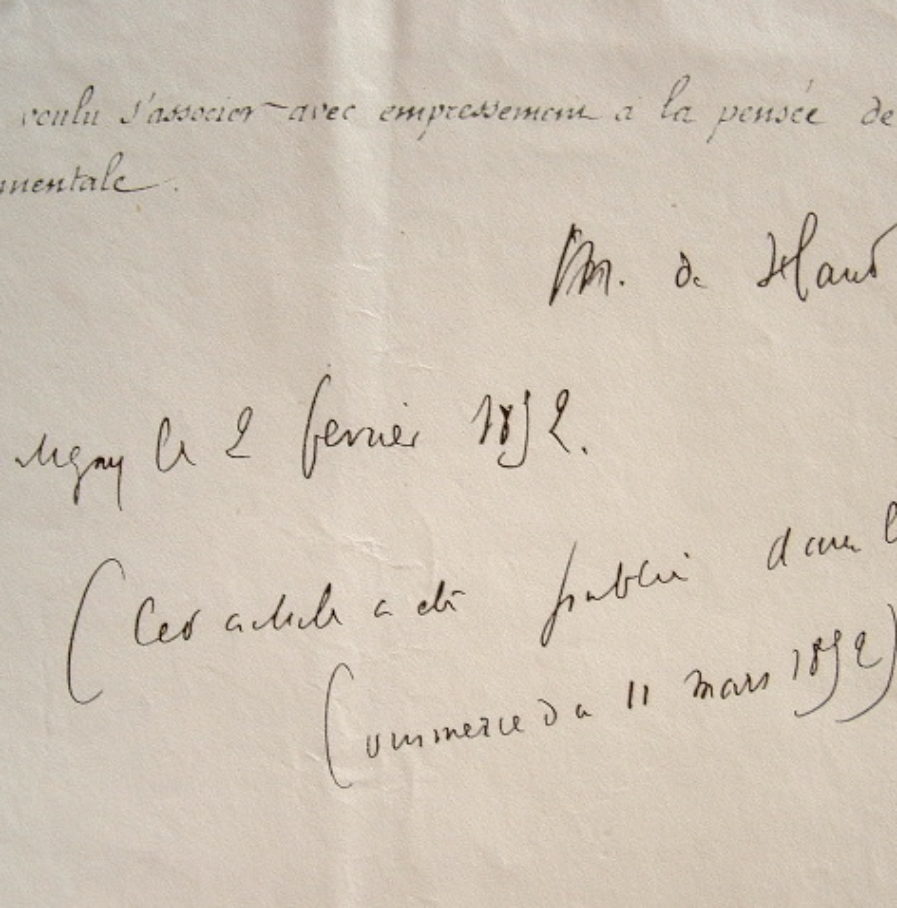 voulu s'associer avec empressement à la pensée de
mentale.
M. de Haut
le 2 fevrier 1892.
(Cet article a été publié dans l
Commerce du 11 mars 1892)